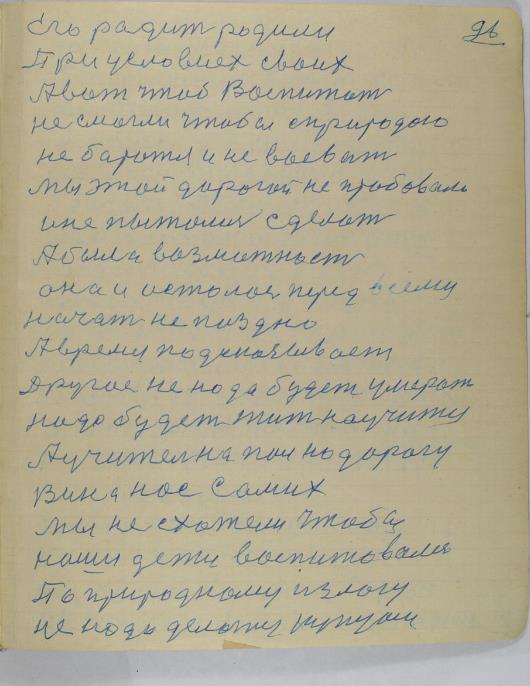 96
Его радит родили
При условиех своих
Авот чтоб Воспитат
не смогли чтобы сприродою
не баротя и не воеват
мы этой дорогой не пробовали
ине пыталия сделат
Абыла возмотност
она и осталоя перед всеми
начат не паздно
Авремя подсказывает
Другое не нада будет умерат
надо будет жит научитя
Аучител на пои на дорогу
Вина нос самих
мы не схотели чтобы
наши дети воспитовалия
По природному
не нада